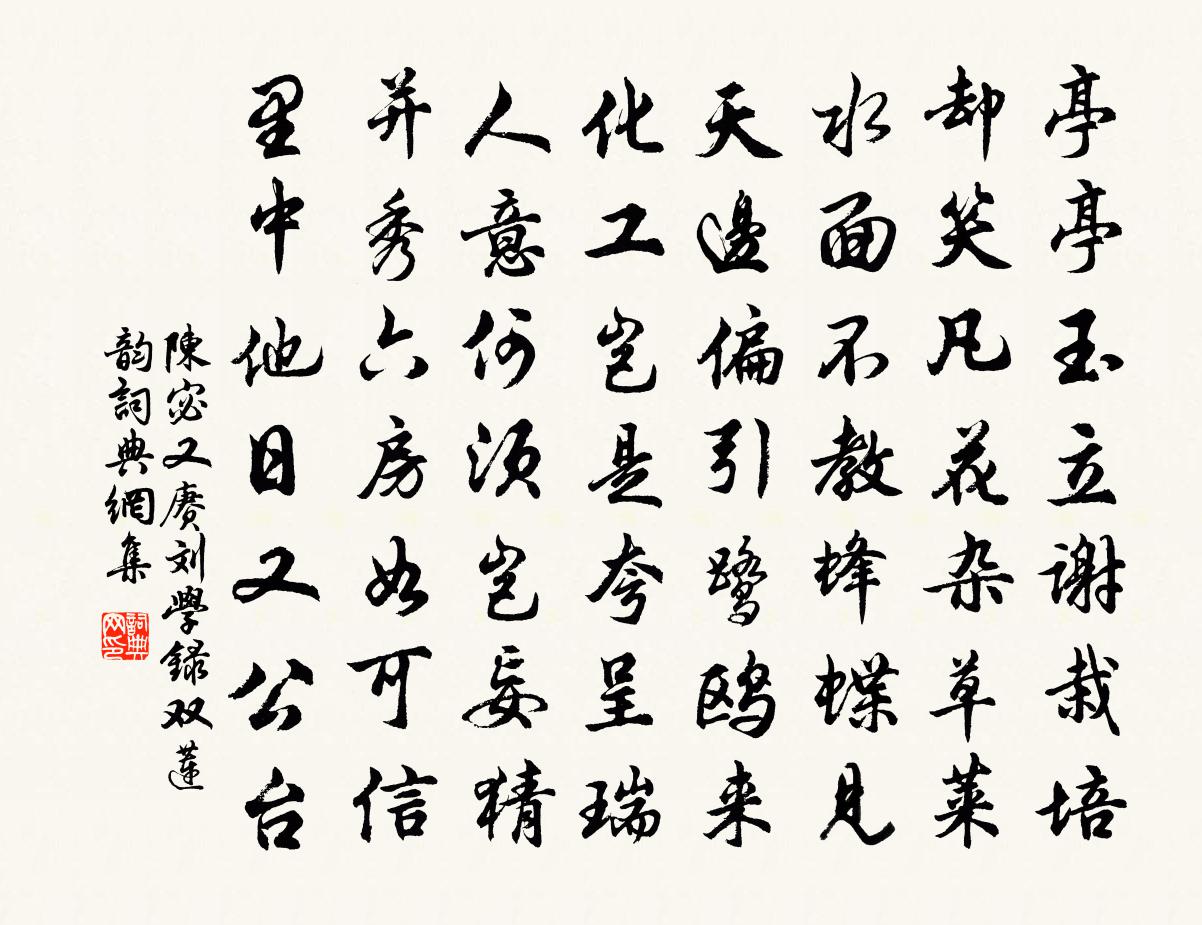 亭亭玉立謝栽培
却笑凡花杂草莱
水面不教蜂蝶見
天邊偏引鷺鷗来
化工岂是夸呈瑞
人意何須岂妄猜
并秀六房如可信
里中他日又公台
陳宓又賡刘學録双蓮
韵詞典網集
詞典网印